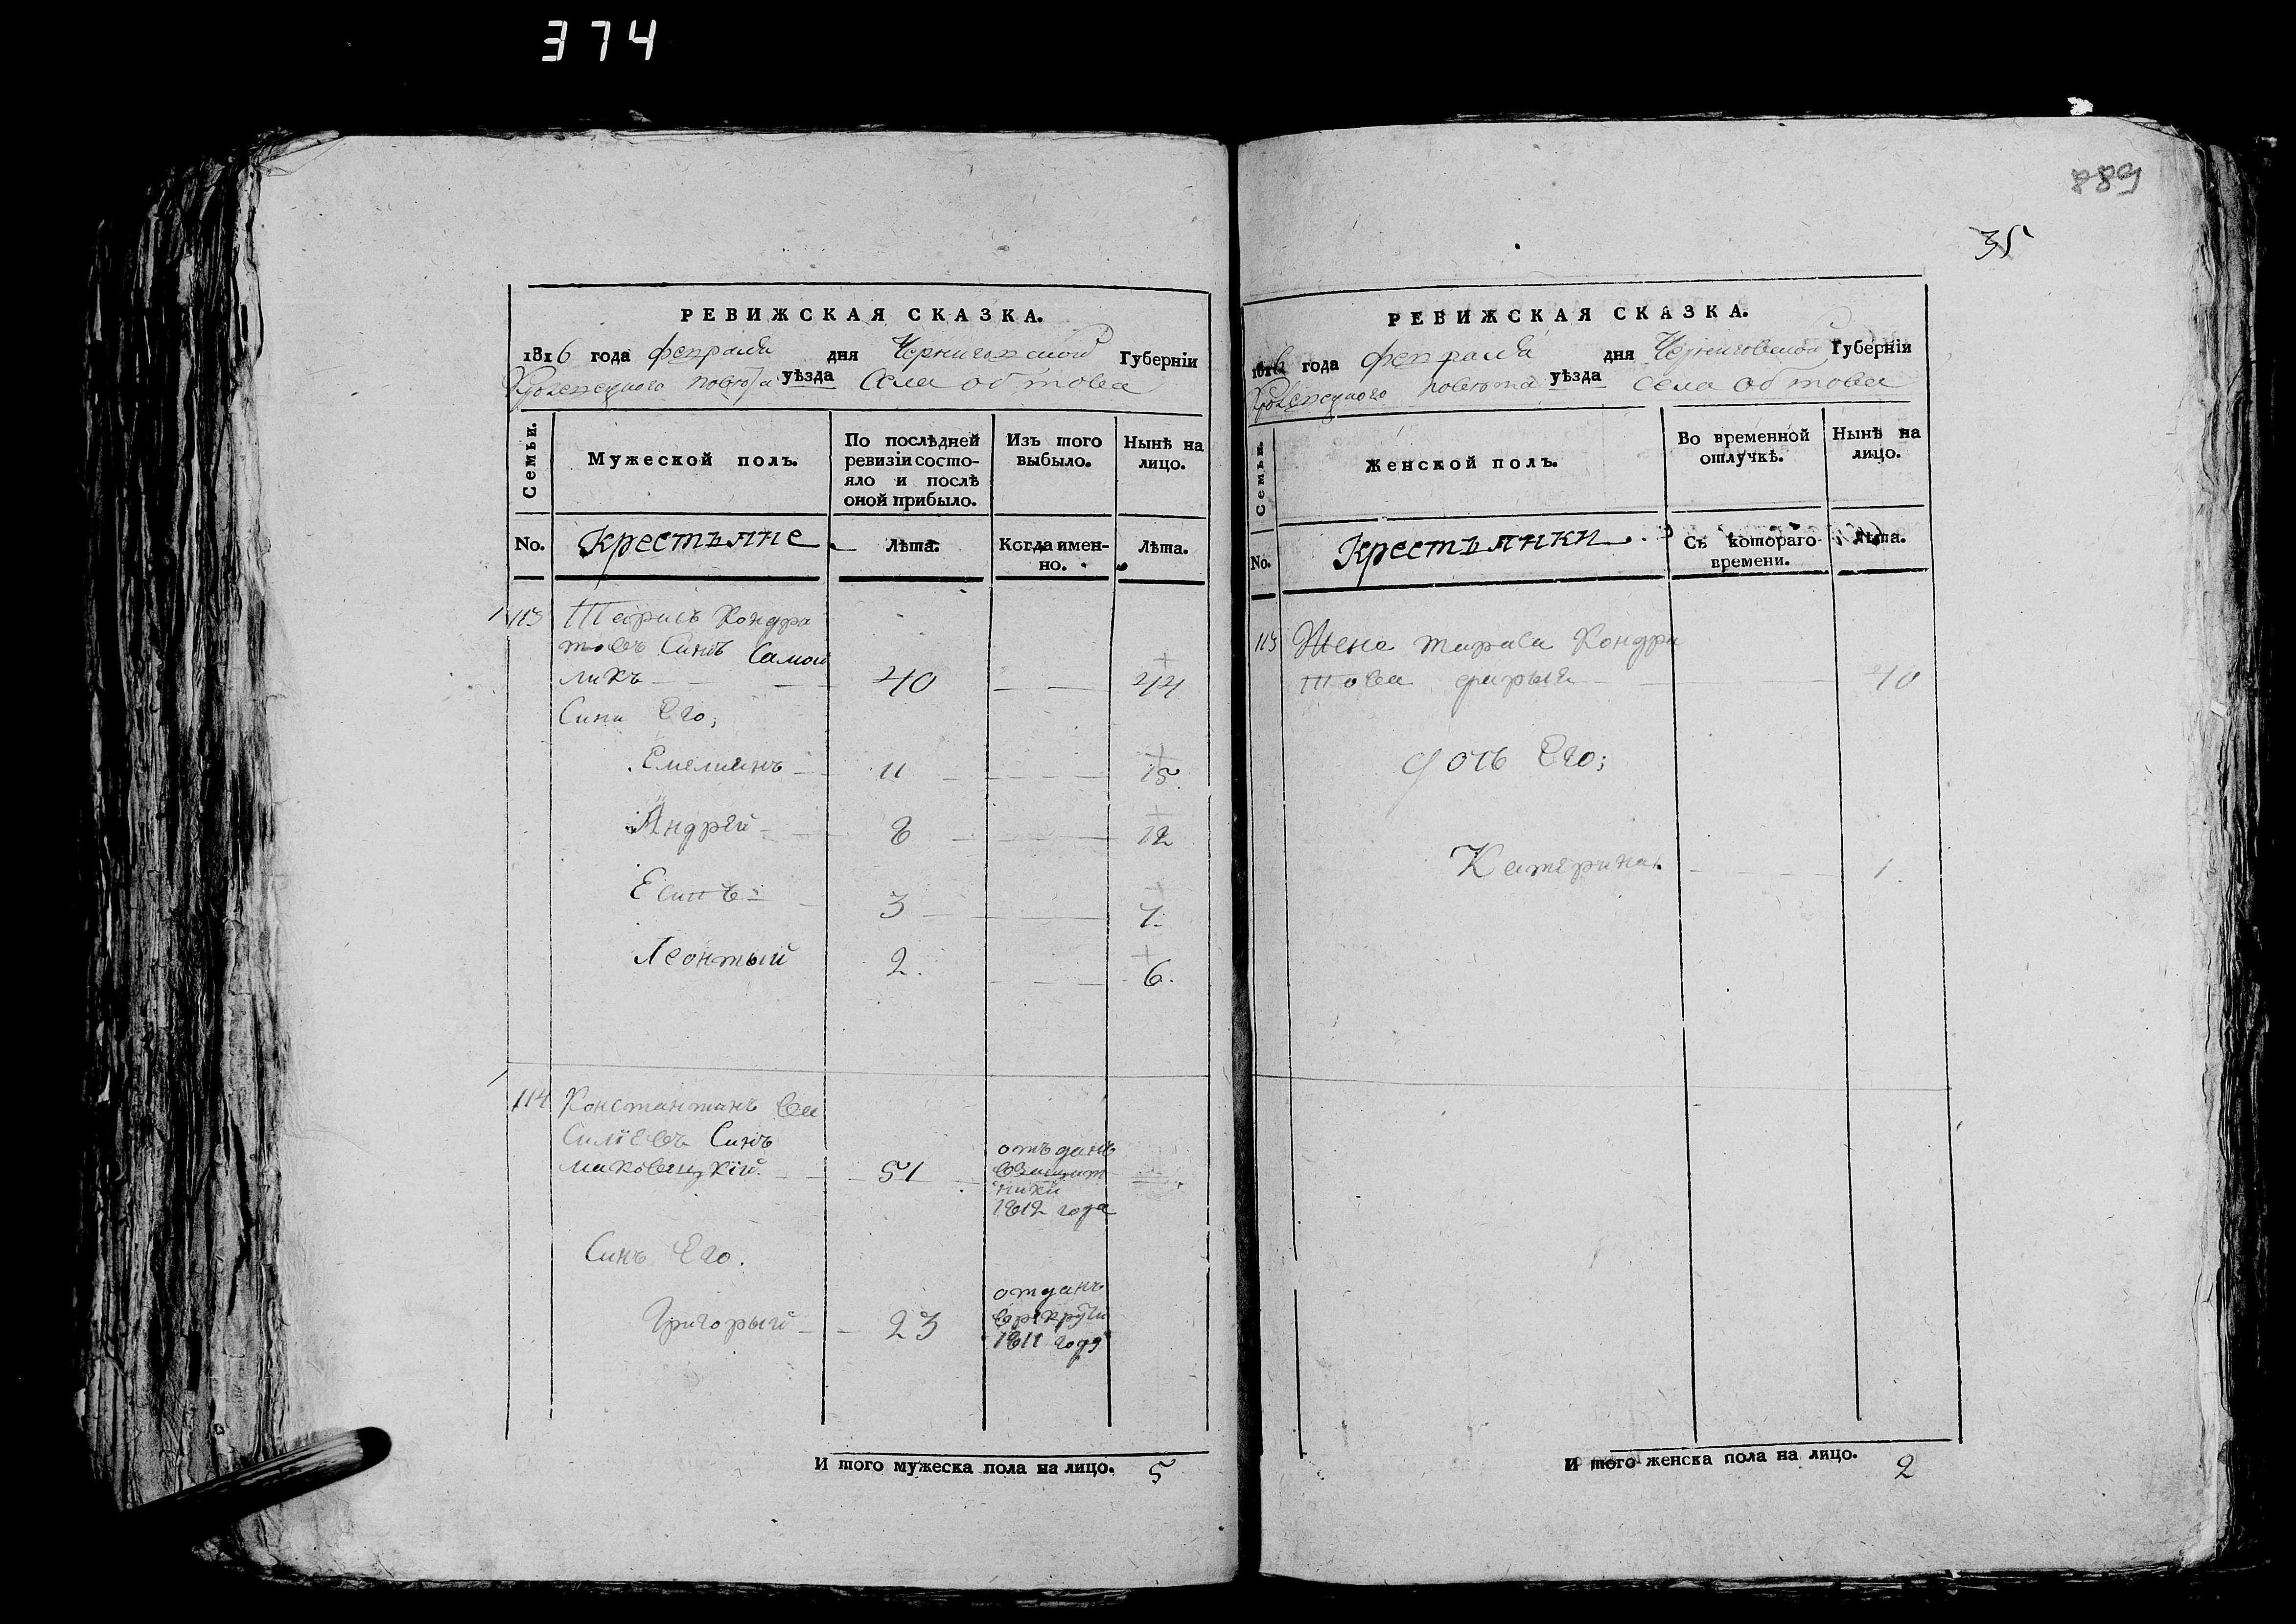 374
889
35
РЕВИЖСКАЯ СКАЗКА.
1816 года февраля дня Черниговской Губерніи
Кролевецкого повета уѣзда Села обтова
Семьи.
Мужеской полъ.
По послѣдней ревизіи состояло и послѣ оной прибыло.
Изъ того выбыло.
Нынѣ на лицо.
No. Крестьяне Лѣта. Когда именно. Лѣта.
113 Тарасъ Кондра
товъ Синъ Самой
ликъ 40 44
Сини Его;
Емелиянъ 11 15.
Андрей 8 12
Есипъ 3 7.
Леонтый 2. 6.
114 Константинъ Ва
силіевъ Синъ
маковецкій. 51 отъданъ
ники
1812 года
Синъ Его.
Григорый 23 отданъ
врекруты
1811 года
И того мужеска пола на лицо. 5
РЕВИЖСКАЯ СКАЗКА.
1816 года февраля дня Черниговской Губерніи
Кролевецкого повета уѣзда Села обтова
Семьи.
Женской полъ.
Во временной отлучкѣ.
Нынѣ на лицо.
No. Крестьянки Съ котораго времени. Лѣта.
113 Жена тараса Кондра
това 40
дочь Его;
Катерина. 1.
И того женска пола на лицо. 2